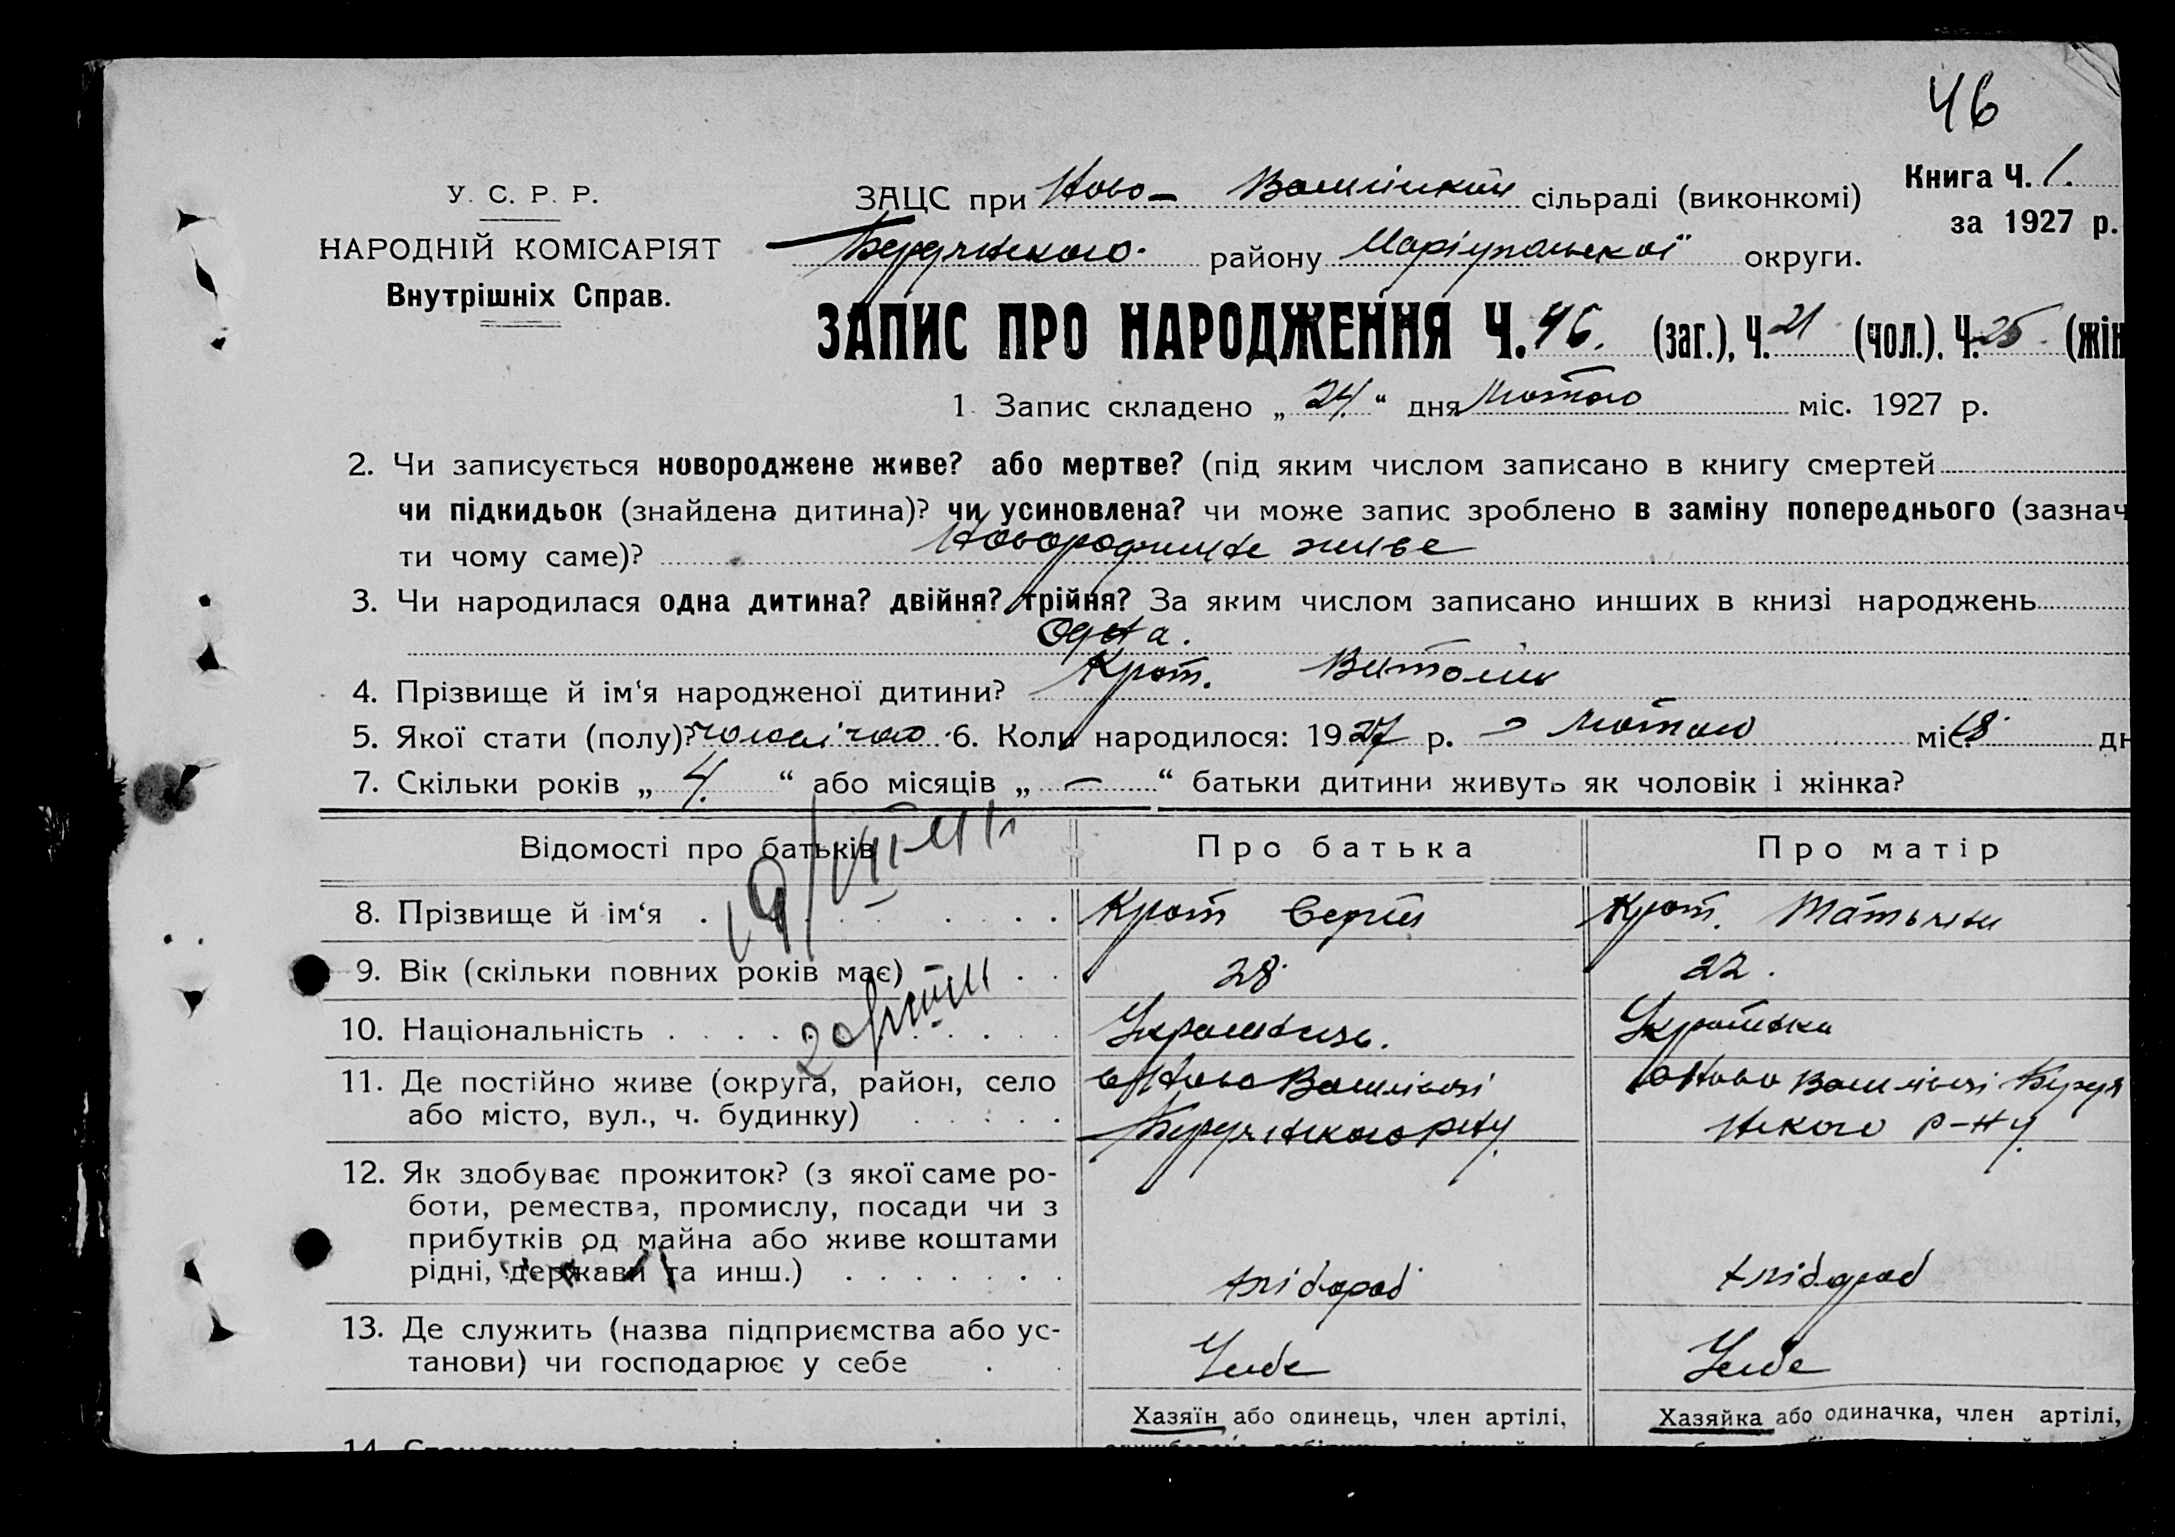 46
У. С. Р. Р.
НАРОДНІЙ КОМІСАРІЯТ
Внутрішніх Справ.
Книга Ч. 1.
за 1927 р.
ЗАЦС при Ново- сільраді (виконкомі)
району Маріупольської округи.
ЗАПИС ПРО НАРОДЖЕННЯ Ч. 46. (заг.), Ч. 21 (чол.). Ч. 25 (жін
1. Запис складено „ 24. “ дня Лютого міс. 1927 р.
2. Чи записується новороджене живе? або мертве? (під яким числом записано в книгу смертей
чи підкидьок (знайдена дитина)? чи усиновлена? чи може запис зроблено в заміну попереднього (зазнач
ти чому саме)? живе
3. Чи народилася одна дитина? двійня? трійня? За яким числом записано инших в книзі народжень
Одна.
4. Прізвище й ім‘я народженої дитини? Крот.
5. Якої стати (полу)? 6. Коли народилося: 1927 р. Лютого міс. 18. дн
7. Скільки років „ 4. “ або місяців „ — “ батьки дитини живуть як чоловік і жінка?
Відомості про батьків
Про батька
Про матір
8. Прізвище й ім‘я
Крот Сергій
Крот. Татьяна
9. Вік (скільки повних років має)
28.
22.
10. Національність
Українець.
Українка
11. Де постійно живе (округа, район, село
або місто, вул., ч. будинку)
12. Як здобуває прожиток? (з якої саме ро-
боти, ремества, промислу, посади чи з
прибутків од майна або живе коштами
рідні, держави та инш.)
хлібороб
хлібороб
13. Де служить (назва підприємства або ус-
танови) чи господарює у себе
У себе
У себе
Хазяїн або одинець, член артілі,
Хазяйка або одиначка, член артілі,